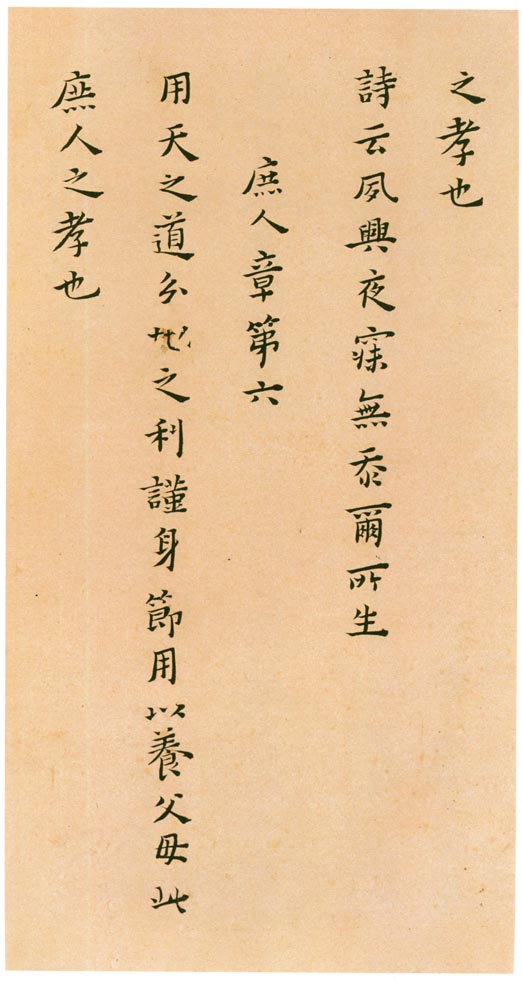 之孝也
詩云夙興夜寐無忝爾所生
庶人章第六
用天之道分地之利謹身節用以養父母此
庶人之孝也